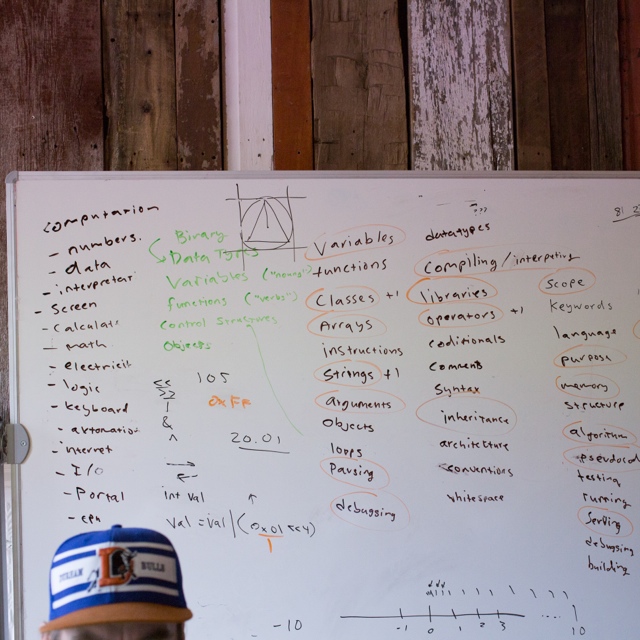 computation
- numbers.
- data
- interpretar
- Screen
- calculate
- math
- electricit
- logic
- keyboard
- automatio
- internet
- I/O
- Portal
- cpu
Binary
Data Types
Variables ("nouns")
functions ("verbs")
control structures
Objects
<< 105
>>
| 0xFF
&
^ 20.01
int val
val = val | (0x01 << 4)
1
Variables
functions
Classes +1
Arrays
instructions
Strings +1
arguments
Objects
loops
Parsing
debugging
???
datatypes
Compiling/interpreting
libraries
operators +1
coditionals
Comments
Syntax
inheritance
architecture
conventions
whitespace
scope
keywords
language
purpose
memory
structure
algorithm
pseudocod
testing
running
debugging
building
-10 -1 0 1 2 3 .... 10
DURHAM D BULLS